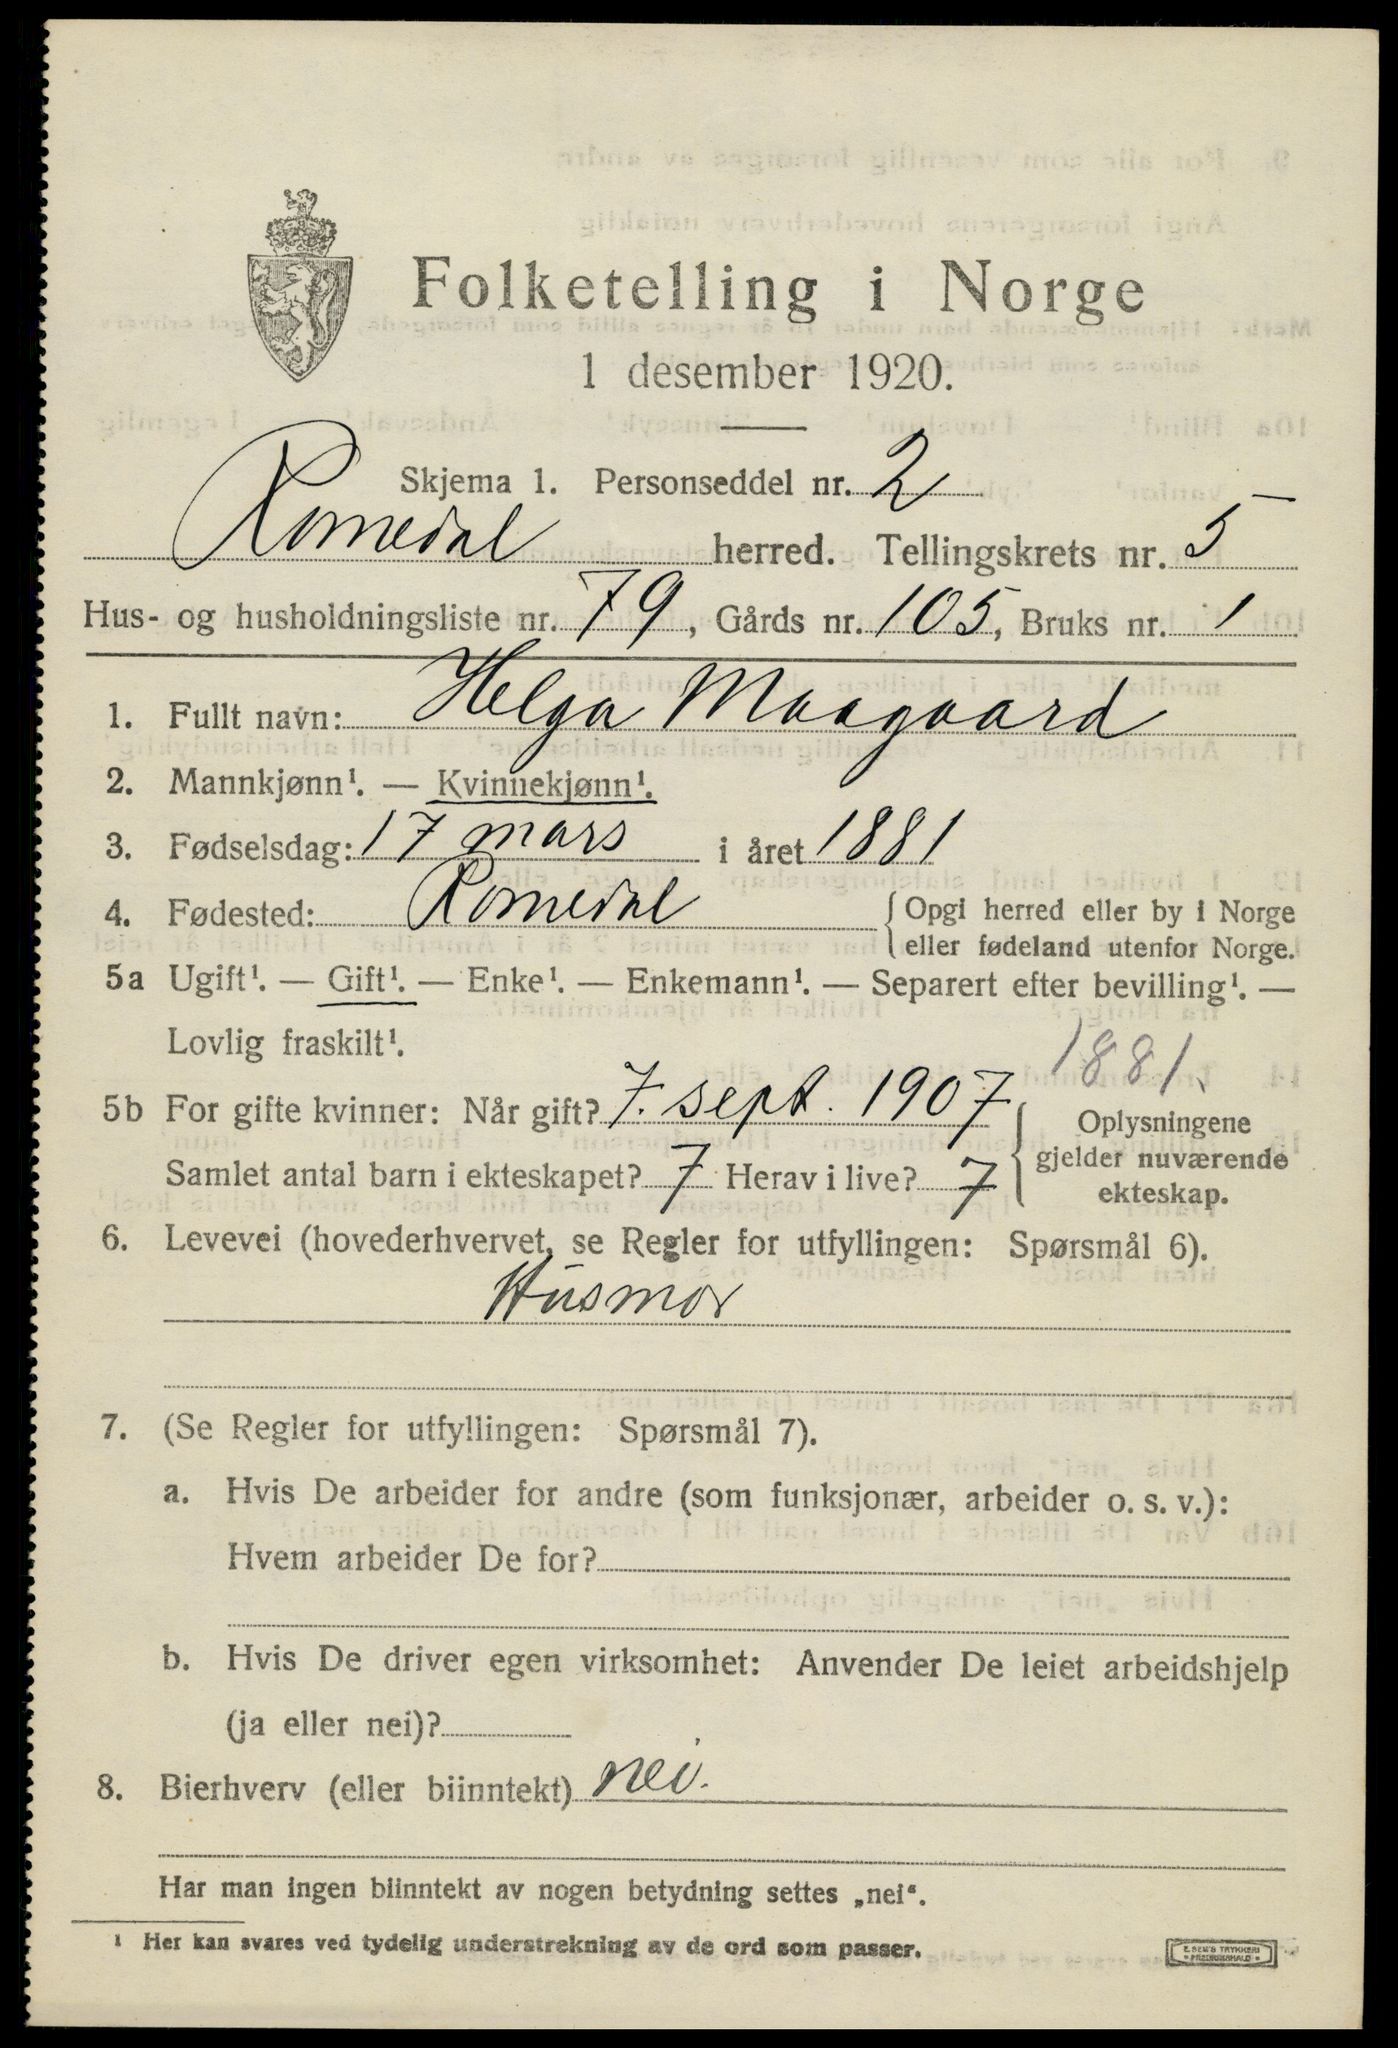 Folketelling i Norge
1 desember 1920.
Skjema 1. Personseddel nr. 2
Romedal herred. Tellingskrets nr. 5
Hus- og husholdningsliste nr. 79, Gårds nr. 105, Bruks nr. 1
1. Fullt navn: Helga Maagaard
2. Mannkjønn¹. — Kvinnekjønn¹.
3. Fødselsdag: 17 mars i året 1881
4. Fødested: Romedal { Opgi herred eller by i Norge
eller fødeland utenfor Norge.
5a Ugift¹. — Gift¹. — Enke¹. — Enkemann¹. — Separert efter bevilling¹. —
Lovlig fraskilt¹.
1881.
5b For gifte kvinner: Når gift? 7. sept. 1907 { Oplysningene
gjelder nuværende
ekteskap.
Samlet antal barn i ekteskapet? 7 Herav i live? 7
6. Levevei (hovederhvervet, se Regler for utfyllingen: Spørsmål 6).
Husmor
7. (Se Regler for utfyllingen: Spørsmål 7).
a. Hvis De arbeider for andre (som funksjonær, arbeider o. s. v.):
Hvem arbeider De for?
b. Hvis De driver egen virksomhet: Anvender De leiet arbeidshjelp
(ja eller nei)?
8. Bierhverv (eller biinntekt) nei.
Har man ingen biinntekt av nogen betydning settes „nei“.
¹ Her kan svares ved tydelig understrekning av de ord som passer.
E. SEM'S TRYKKERI
FREDRIKSHALD